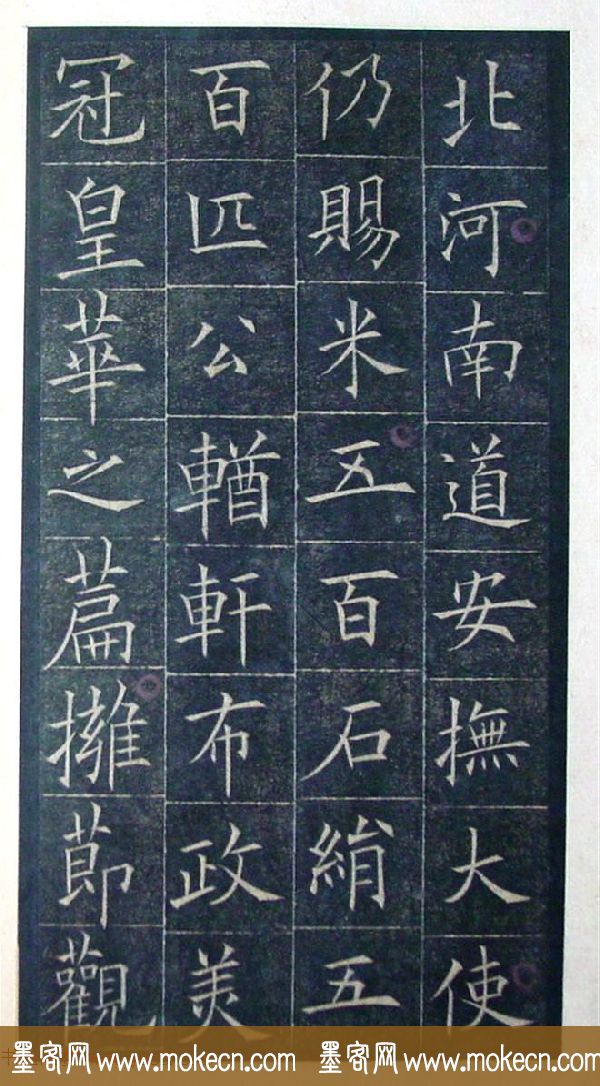 北河南道安撫大使
仍賜米五百石絹五
百匹公輶軒布政美
冠皇華之篇擁節觀
墨客网 www.mokecn.com 墨客网 www.mokecn.com